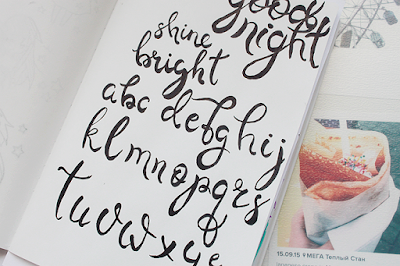 good
night
shine
bright
abc defghij
klmnopqrs
tuvwxyz
15.09.15 УМЕГА Теплый Стан